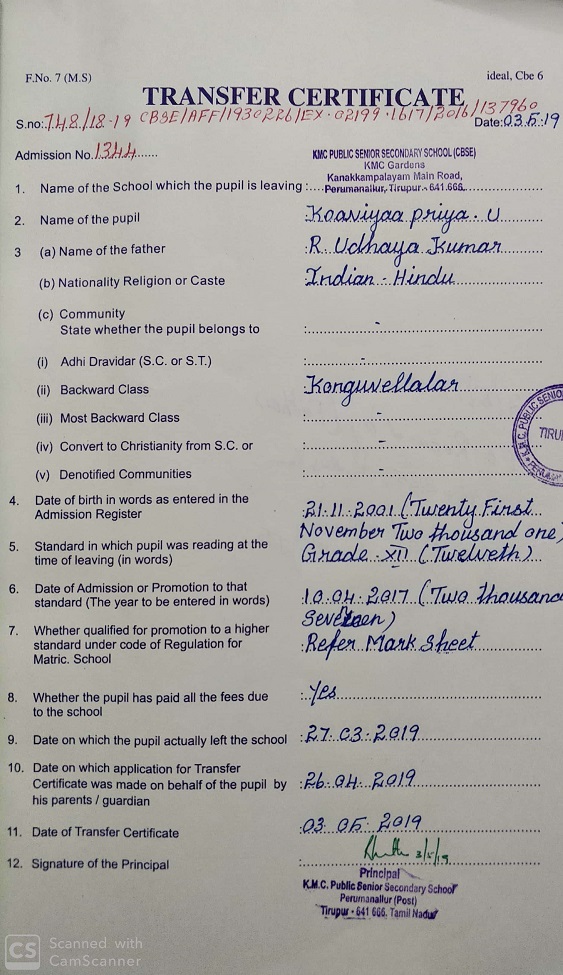 F.No. 7 (M.S)
ideal, Cbe 6
TRANSFER CERTIFICATE
S.no:748/18-19 CBSE/AFF/1930226/EX-02199-1617/2016/137960
Date:03.5.19
Admission No.1344
KMC PUBLIC SENIOR SECONDARY SCHOOL (CBSE)
KMC Gardens
Kanakkampalayam Main Road,
1. Name of the School which the pupil is leaving : Perumanallur, Tirupur - 641 666.
2. Name of the pupil : Kaaviyaa priya. U
3 (a) Name of the father : R. Udhaya Kumar
(b) Nationality Religion or Caste : Indian - Hindu
(c) Community
State whether the pupil belongs to : -
(i) Adhi Dravidar (S.C. or S.T.) : -
(ii) Backward Class Konguvellalar
(iii) Most Backward Class : -
(iv) Convert to Christianity from S.C. or : -
(v) Denotified Communities : -
K.M.C. PUBLIC SENIO
TIRU
PERUMA
4. Date of birth in words as entered in the : 21.11.2001 (Twenty First
Admission Register November Two thousand one)
5. Standard in which pupil was reading at the : Grade - XII (Twelveth)
time of leaving (in words)
6. Date of Admission or Promotion to that : 10.04.2017 (Two thousand
standard (The year to be entered in words) Seventeen)
7. Whether qualified for promotion to a higher : Refer Mark Sheet
standard under code of Regulation for
Matric. School
8. Whether the pupil has paid all the fees due : Yes
to the school
9. Date on which the pupil actually left the school : 27.03.2019
10. Date on which application for Transfer
Certificate was made on behalf of the pupil by : 26.04.2019
his parents / guardian
11. Date of Transfer Certificate : 03.05.2019
12. Signature of the Principal : 3/5/19
Principal
K.M.C. Public Senior Secondary School
Perumanallur (Post)
Tirupur - 641 666, Tamil Nadu
CS Scanned with
CamScanner